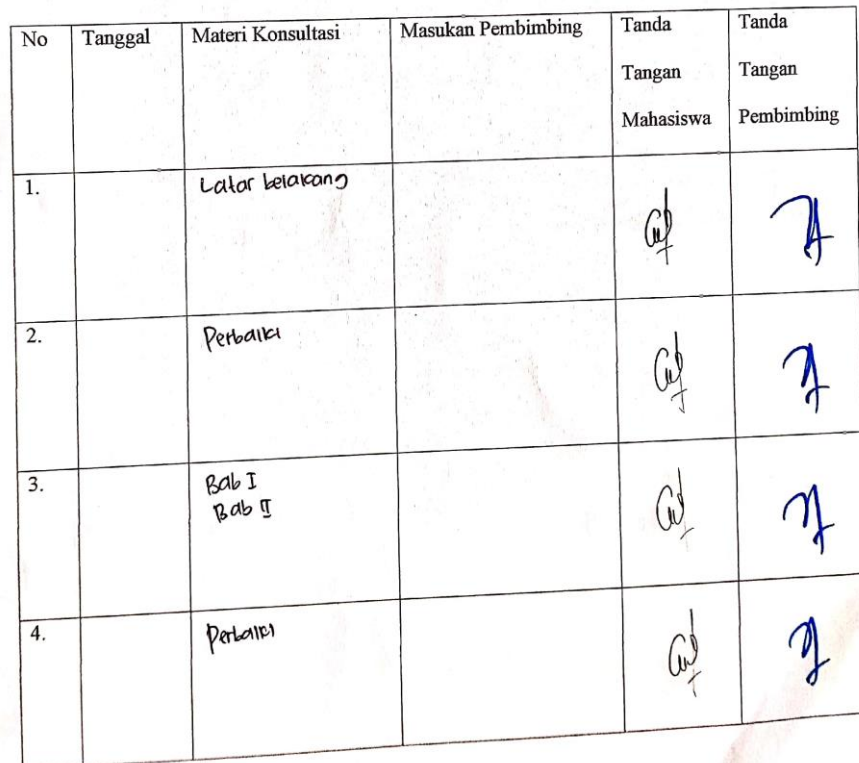 No Tanggal Materi Konsultasi Masukan Pembimbing Tanda Tangan Mahasiswa Tanda Tangan Pembimbing
1. Latar belakang
2. Perbaiki
3. Bab I
Bab II
4. Perbaiki